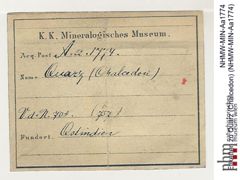 K. K. Mineralogisches Museum.
Acq. Post A. a. 1774.
Name: Quarz (Chalcedon)
Vd. N. 704. (757)
Fundort. Ostindien
NHMW-MIN-Aa1774
(Chalcedon) (NHMW-MIN-Aa1774)
nhm